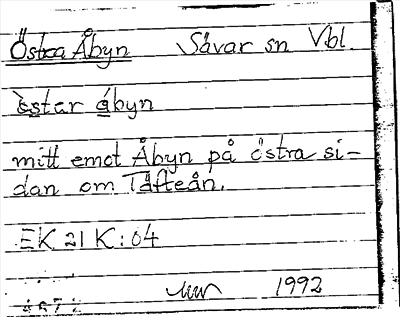 Östra Åbyn Sävar sn Vbl.
östar åbyn
mitt emot Åbyn på östra si-
dan om Täfteån.
EK 21 K:04
1992